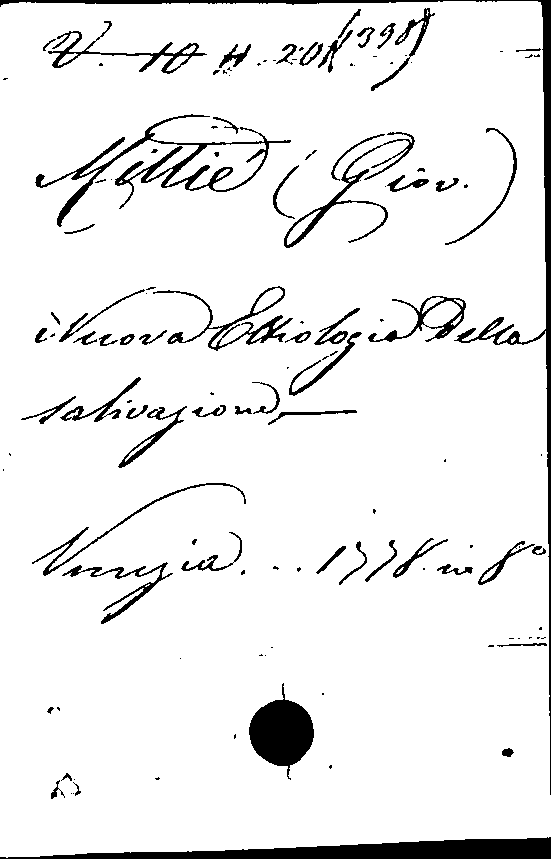 V. 10 H 201(398)
Millié (Giov.)
Nuova Ettiologia Della
salivazione,—
Venezia... 1778. in 8º